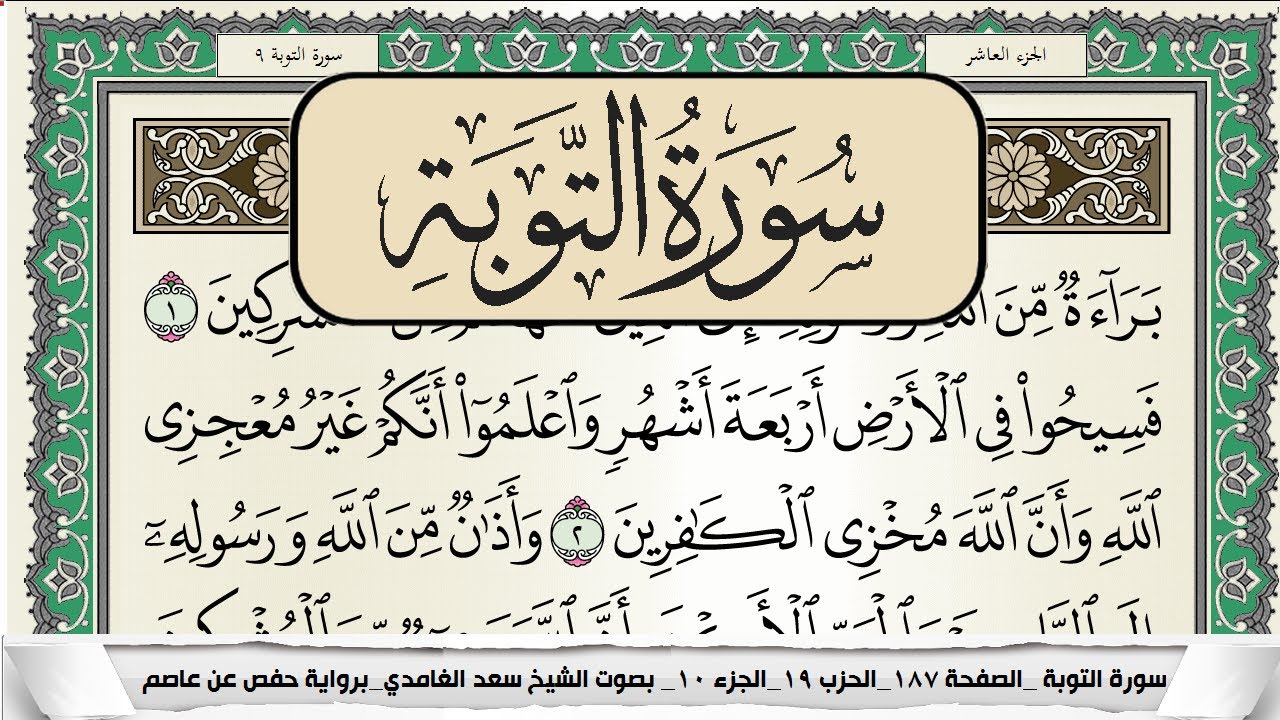 الجزء العاشر
سورة التوبة ٩
سُورَةُ التَّوْبَةِ
بَرَآءَةٌ مِّنَ ١
فَسِيحُوا۟ فِى ٱلْأَرْضِ أَرْبَعَةَ أَشْهُرٍ وَٱعْلَمُوٓا۟ أَنَّكُمْ غَيْرُ مُعْجِزِى
ٱللَّهِ وَأَنَّ ٱللَّهَ مُخْزِى ٱلْكَـٰفِرِينَ ٢ وَأَذَٰنٌ مِّنَ ٱللَّهِ وَرَسُولِهِۦٓ
سورة التوبة _الصفحة ١٨٧_الحزب ١٩_الجزء ١٠_ بصوت الشيخ سعد الغامدي_برواية حفص عن عاصم